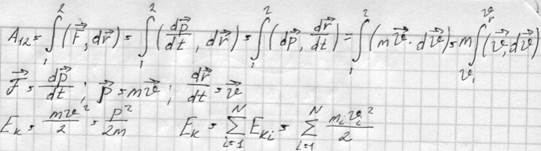 A₁₂ = ∫₁² (F⃗, dr⃗) = ∫₁² (dp⃗/dt, dr⃗) = ∫₁² (dp⃗, dr⃗/dt) = ∫₁² (m v⃗ · dv⃗) = m ∫ (v⃗, dv⃗)
F⃗ = dp⃗/dt ; p⃗ = mv⃗ ; dr⃗/dt = v⃗
E_K = mv²/2 = p²/2m    E_K = ∑_{i=1}^{N} E_{Ki} = ∑_{i=1}^{N} m_i v_i²/2